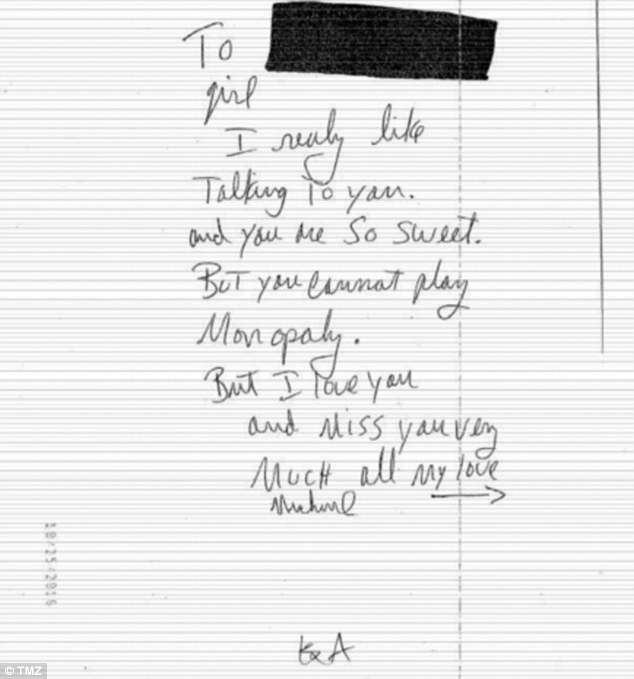 To
girl
I realy like
Talking To you.
and you are so sweet.
But you cannot play
Monopaly.
But I love you
and Miss you very
Much all My love
Michael
10/25/2016
© TMZ